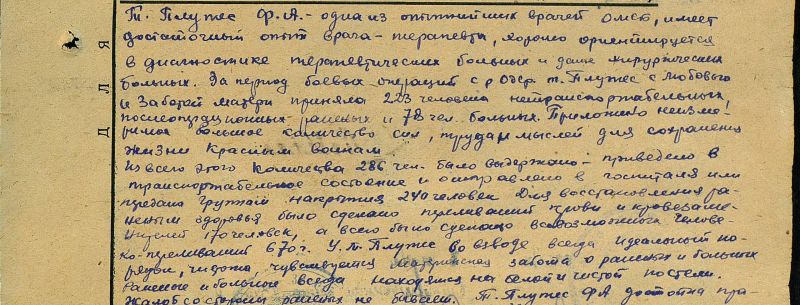 Т. Плужес Ф.А. - одна из опытнейших врачей ОМСБ, имеет
достаточный опыт врача-терапевта, хорошо ориентируется
в диагностике терапевтических больных и даже хирургических
больных. За период боевых операций с р Одер т. Плужес с любовью
и заботой матери приняла 223 человека нетранспортабельных,
послеоперационных раненых и 78 чел. больных. Приложено неизме-
римое большое количество сил, труда и мыслей для сохранения
жизни Красным воинам
Из всего этого количества 286 чел. было выдержано - приведено в
транспортабельное состояние и отправлено в госпиталя или
передано группам накрытия 240 человек Для восстановления ра-
неным здоровья было сделано переливаний крови и кровезаме-
нителей 170 человек, а всего было сделано всевозможных человеко-
ко-переливаний 670 г. У т. Плужес во взводе всегда идеальный по-
рядок, чистота, чувствуется материнская забота о раненых и больных
раненые и больные всегда находятся на белой и чистой постели.
Жалоб со стороны раненых не бывает. Т. Плужес ФА достойна пра-
Д Л Я